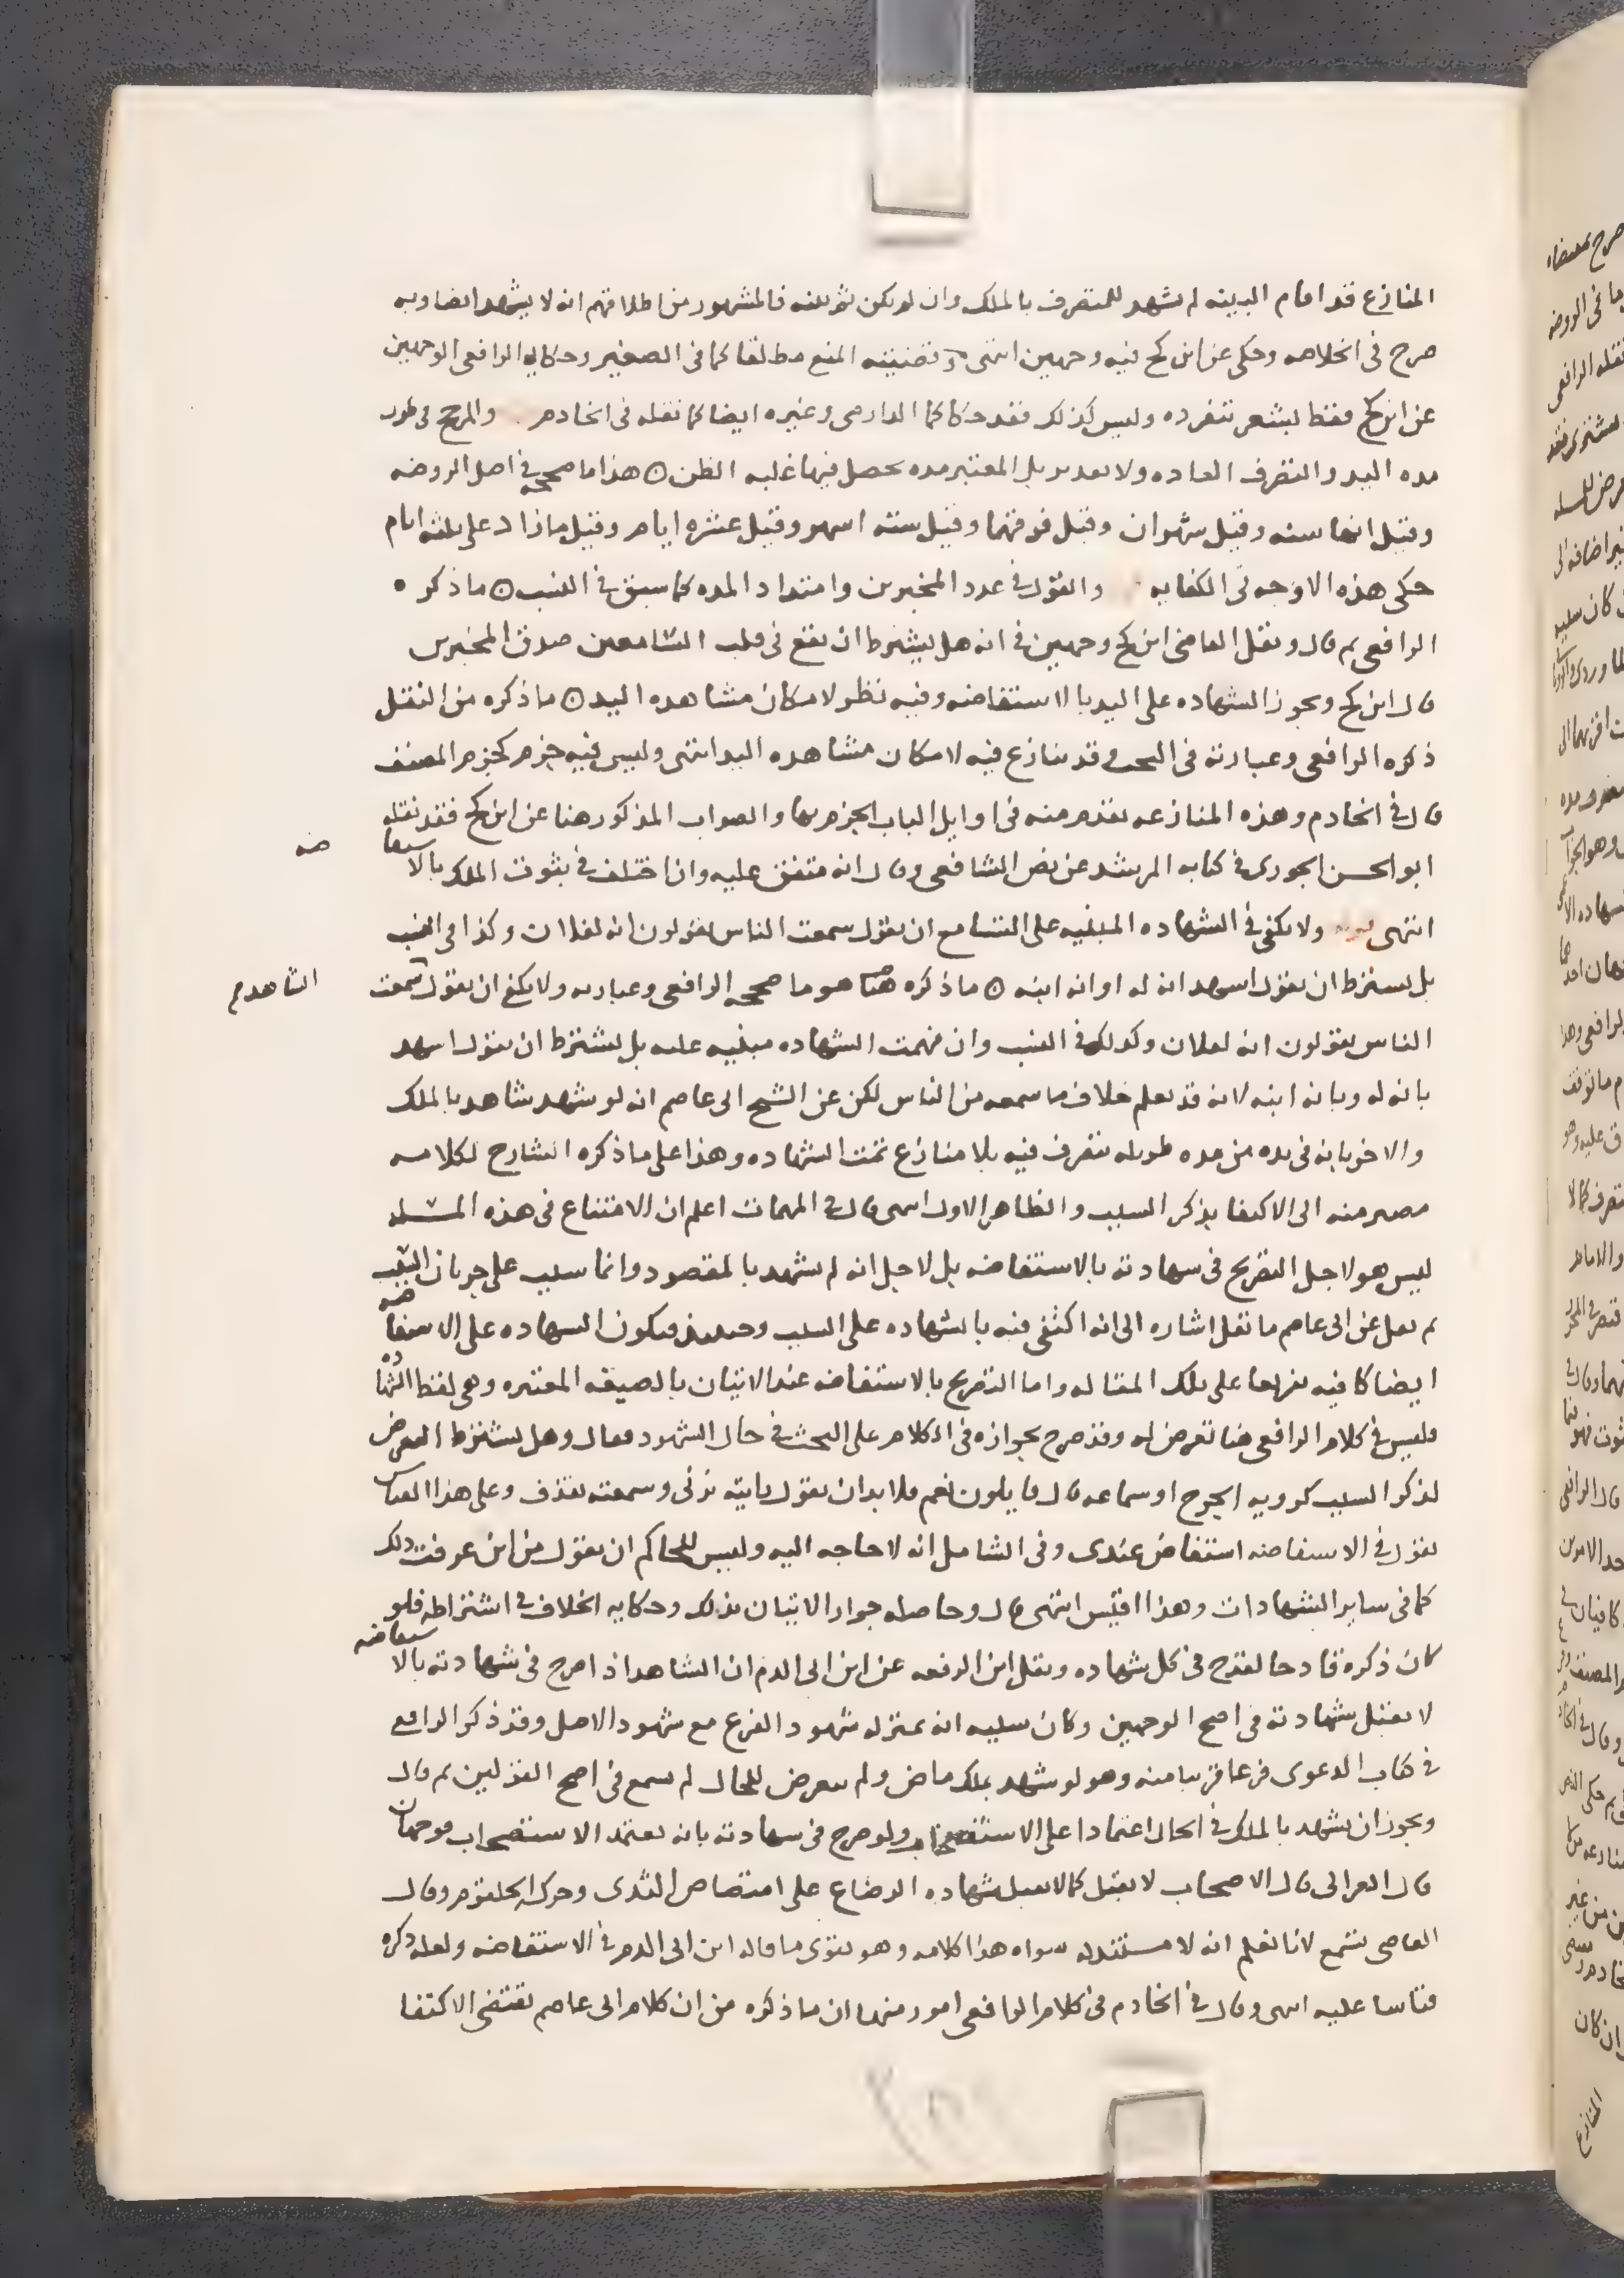 المنازع قد اقام البينه لم يشهد للمتصرف بالملك وان لم يكن ثم بينه فالمشهور من اطلاقهم انه لا يشهد ايضا وبه
صرح في الخلاصه وحكى عن ابن كج فيه وجهين انتهى وقضيته المنع مطلقا كما في الصغير وحكايه الرافعي الوجهين
عن ابن كج فقط يشعر بتفرده وليس كذلك فقد حكاهما الدارمي وغيره ايضا كما نقله في الخادم والمرجح في طول
مده اليد والتصرف العاده ولا تقدير بل المعتبر مده يحصل فيها غلبه الظن هذا ما صححه في اصل الروضه
وقيل انها سنه وقيل شهران وقيل فوقهما وقيل سته اشهر وقيل عشره ايام وقيل ما زاد على ثلثه ايام
حكى هذه الاوجه في الكفايه والقول في عدد المخبرين وامتداد المده كما سبق في النسب ما ذكر
الرافعي ثم قال ونقل القاضي ابن كج وجهين في انه هل يشترط ان يقع في قلب السامعين صدق المخبرين
قال ابن كج ويجوز الشهاده على اليد بالاستفاضه وفيه نظر لامكان مشاهده اليد ما ذكره من النقل
ذكره الرافعي وعبارته في البحث وقد ينازع فيه لامكان مشاهده اليد انتهى وليس فيه جزم كجزم المصنف
قال في الخادم وهذه المنازعه تقدم منه في اوايل الباب الجزم بها والصواب المذكور هنا عن ابن كج فقد نقله
ابو الحسن الجوري في كتابه المرشد عن نص الشافعي وقال انه متفق عليه وان اختلف في ثبوت الملك بالاستفاضه
انتهى ولا يكفي في الشهاده المبنيه على التسامع ان يقول سمعت الناس يقولون انه لفلان وكذا في النسب
بل يشترط ان يقول اشهد انه له او انه ابنه ما ذكره هنا هو ما صححه الرافعي وعبارته ولا يكفي ان يقول الشاهد سمعت
الناس يقولون انه لفلان وكذلك في النسب وان فهمت الشهاده مبنيه عليه بل يشترط ان يقول اشهد
بانه له وبانه ابنه لانه قد يعلم خلاف ما سمعه من الناس لكن عن الشيخ ابي عاصم انه لو شهد شاهد بالملك
والاخر بانه في يده من مده طويله يتصرف فيه بلا منازع تمت الشهاده وهذا على ما ذكره الشارح لكلامه
مصير منه الى الاكتفا بذكر السبب والظاهر الاول انتهى قال في المهمات اعلم ان الامتناع في هذه المسئله
ليس هو لاجل التصريح في شهادته بالاستفاضه بل لاجل انه لم يشهد بالمقصود وانما سبب على جريان السبب
ثم نقل عن ابي عاصم ما نقل اشاره الى انه اكتفي منه بالشهاده على السبب وحينئذ فيكون الشهاده على الاستفاضه
ايضا كافيه تفريعا على تلك المقاله واما التصريح بالاستفاضه عند الاتيان بالصيغه المعتبره وهي لفظ الشهاده
فليس في كلام الرافعي هنا تعرض له وقد صرح بجوازه في الكلام على البحث في حال الشهود فقال وهل يشترط التعرض
لذكر السبب كرويه الجرح او سماعه قال قايلون نعم فلا بد ان يقول رايته يزني وسمعته يقذف وعلى هذا القياس
يقول في الاستفاضه استفاض عندي وفي الشامل انه لا حاجه اليه وليس للحاكم ان يقول من اين عرفت ذلك
كما في ساير الشهادات وهذا اقيس انتهى قال وحاصله جواز الاتيان بذلك وحكايه الخلاف في اشتراطه فلو
كان ذكره قادحا لقدح في كل شهاده ونقل ابن الرفعه عن ابن ابي الدم ان الشاهد اذا صرح في شهادته بالاستفاضه
لا يقبل شهادته في اصح الوجهين وكان سببه انه بمنزله شهود الفرع مع شهود الاصل وقد ذكر الرافعي
في كتاب الدعوى فرعا قريبا منه وهو لو شهد بملك ماض ولم يتعرض للحال لم يسمع في اصح القولين ثم قال
ويجوز ان يشهد بالملك في الحال اعتمادا على الاستصحاب ولو صرح في شهادته بانه يعتمد الاستصحاب فوجهان
قال الغزالي قال الاصحاب لا يقبل كما لا يقبل شهاده الرضاع على امتصاص الثدي وحركه الحلقوم وقال
القاضي يسمع لانا نعلم انه لا مستند له سواه هذا كلامه وهو يقوي ما قاله ابن ابي الدم في الاستفاضه ولعله ذكره
قياسا عليه انتهى وقال في الخادم في كلام الرافعي امور منها ان ما ذكره من ان كلام ابي عاصم يقتضي الاكتفا